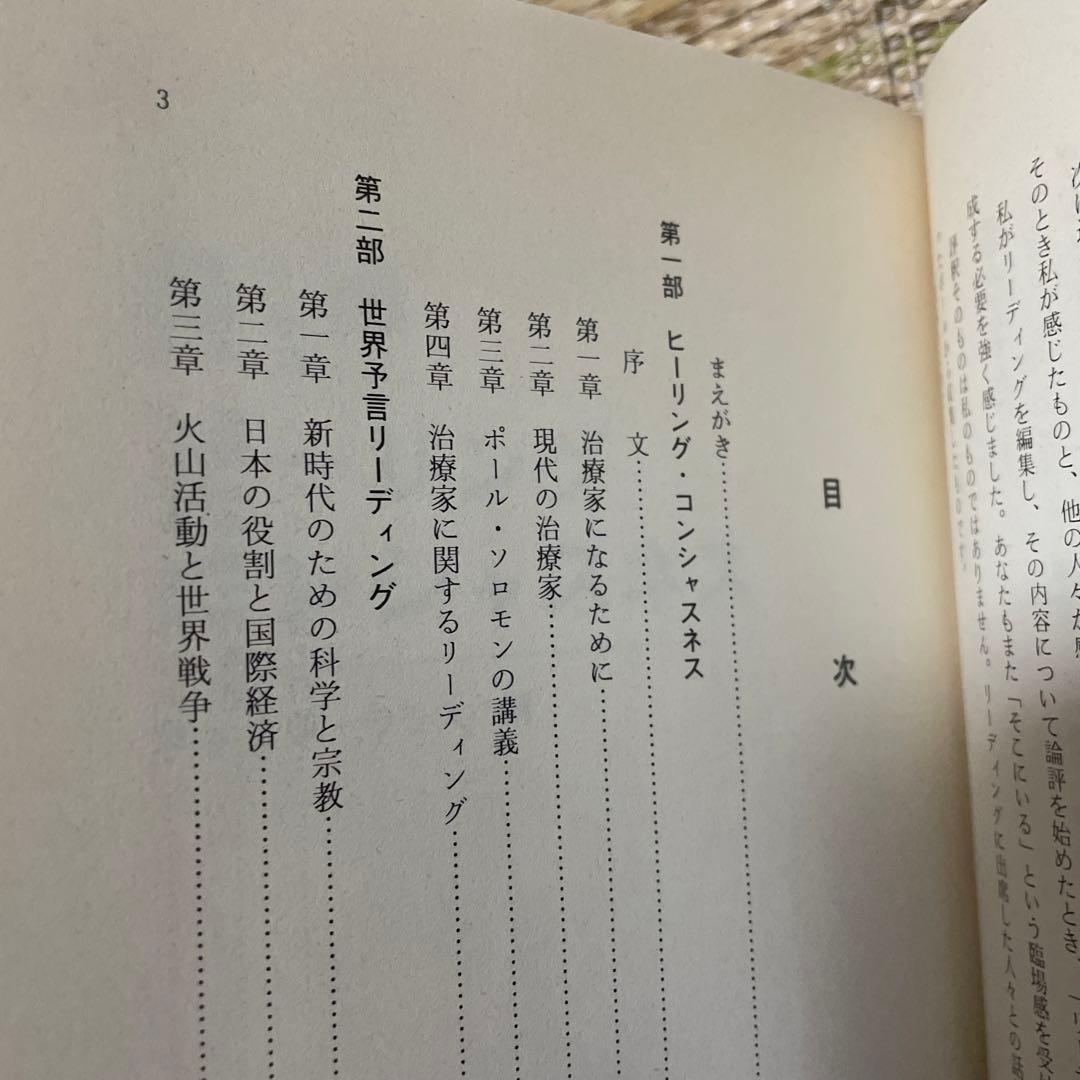 そのとき私が感じたものと、他の人々が感
私がリーディングを編集し、その内容について論評を始めたとき、
成する必要を強く感じました。あなたもまた「そこにいる」という臨場感を受け
そのものは私のものではありません。リーディングに出席した人々との話
目次
まえがき
第一部 ヒーリング・コンシャスネス
序文
第一章 治療家になるために
第二章 現代の治療家
第三章 ポール・ソロモンの講義
第四章 治療家に関するリーディング
第二部 世界予言リーディング
第一章 新時代のための科学と宗教
第二章 日本の役割と国際経済
第三章 火山活動と世界戦争
3